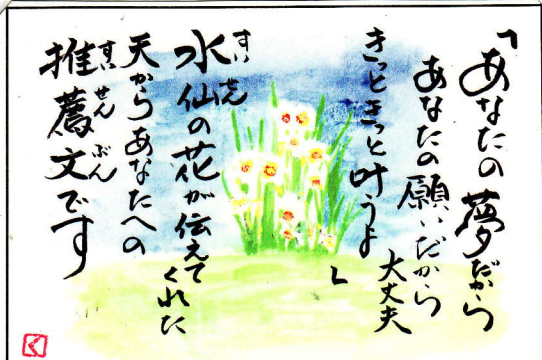 「あなたの夢だから
あなたの願いだから
大丈夫
きっときっと叶うよ」
すいせん
水仙の花が伝えてくれた
天からあなたへの
すいせんぶん
推薦文です
く